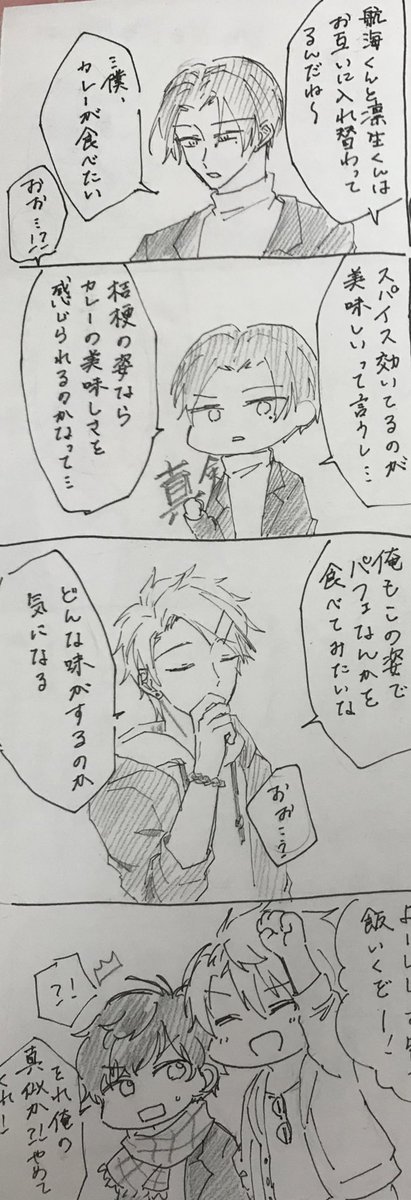 航海くんと凛生くんは
お互いに入れ替わって
るんだね〜
…僕、
カレーが食べたい
おお…!?
スパイス効いてるのが
美味しいって言うし…
桔梗の姿なら
カレーの美味しさを
感じられるのかなって…
真剣
俺もこの姿で
パフェなんかを
食べてみたいな
どんな味がするのか
気になる
おお…?
飯いくぞー!
?!
それ俺の
真似か?!やめて
くれ!